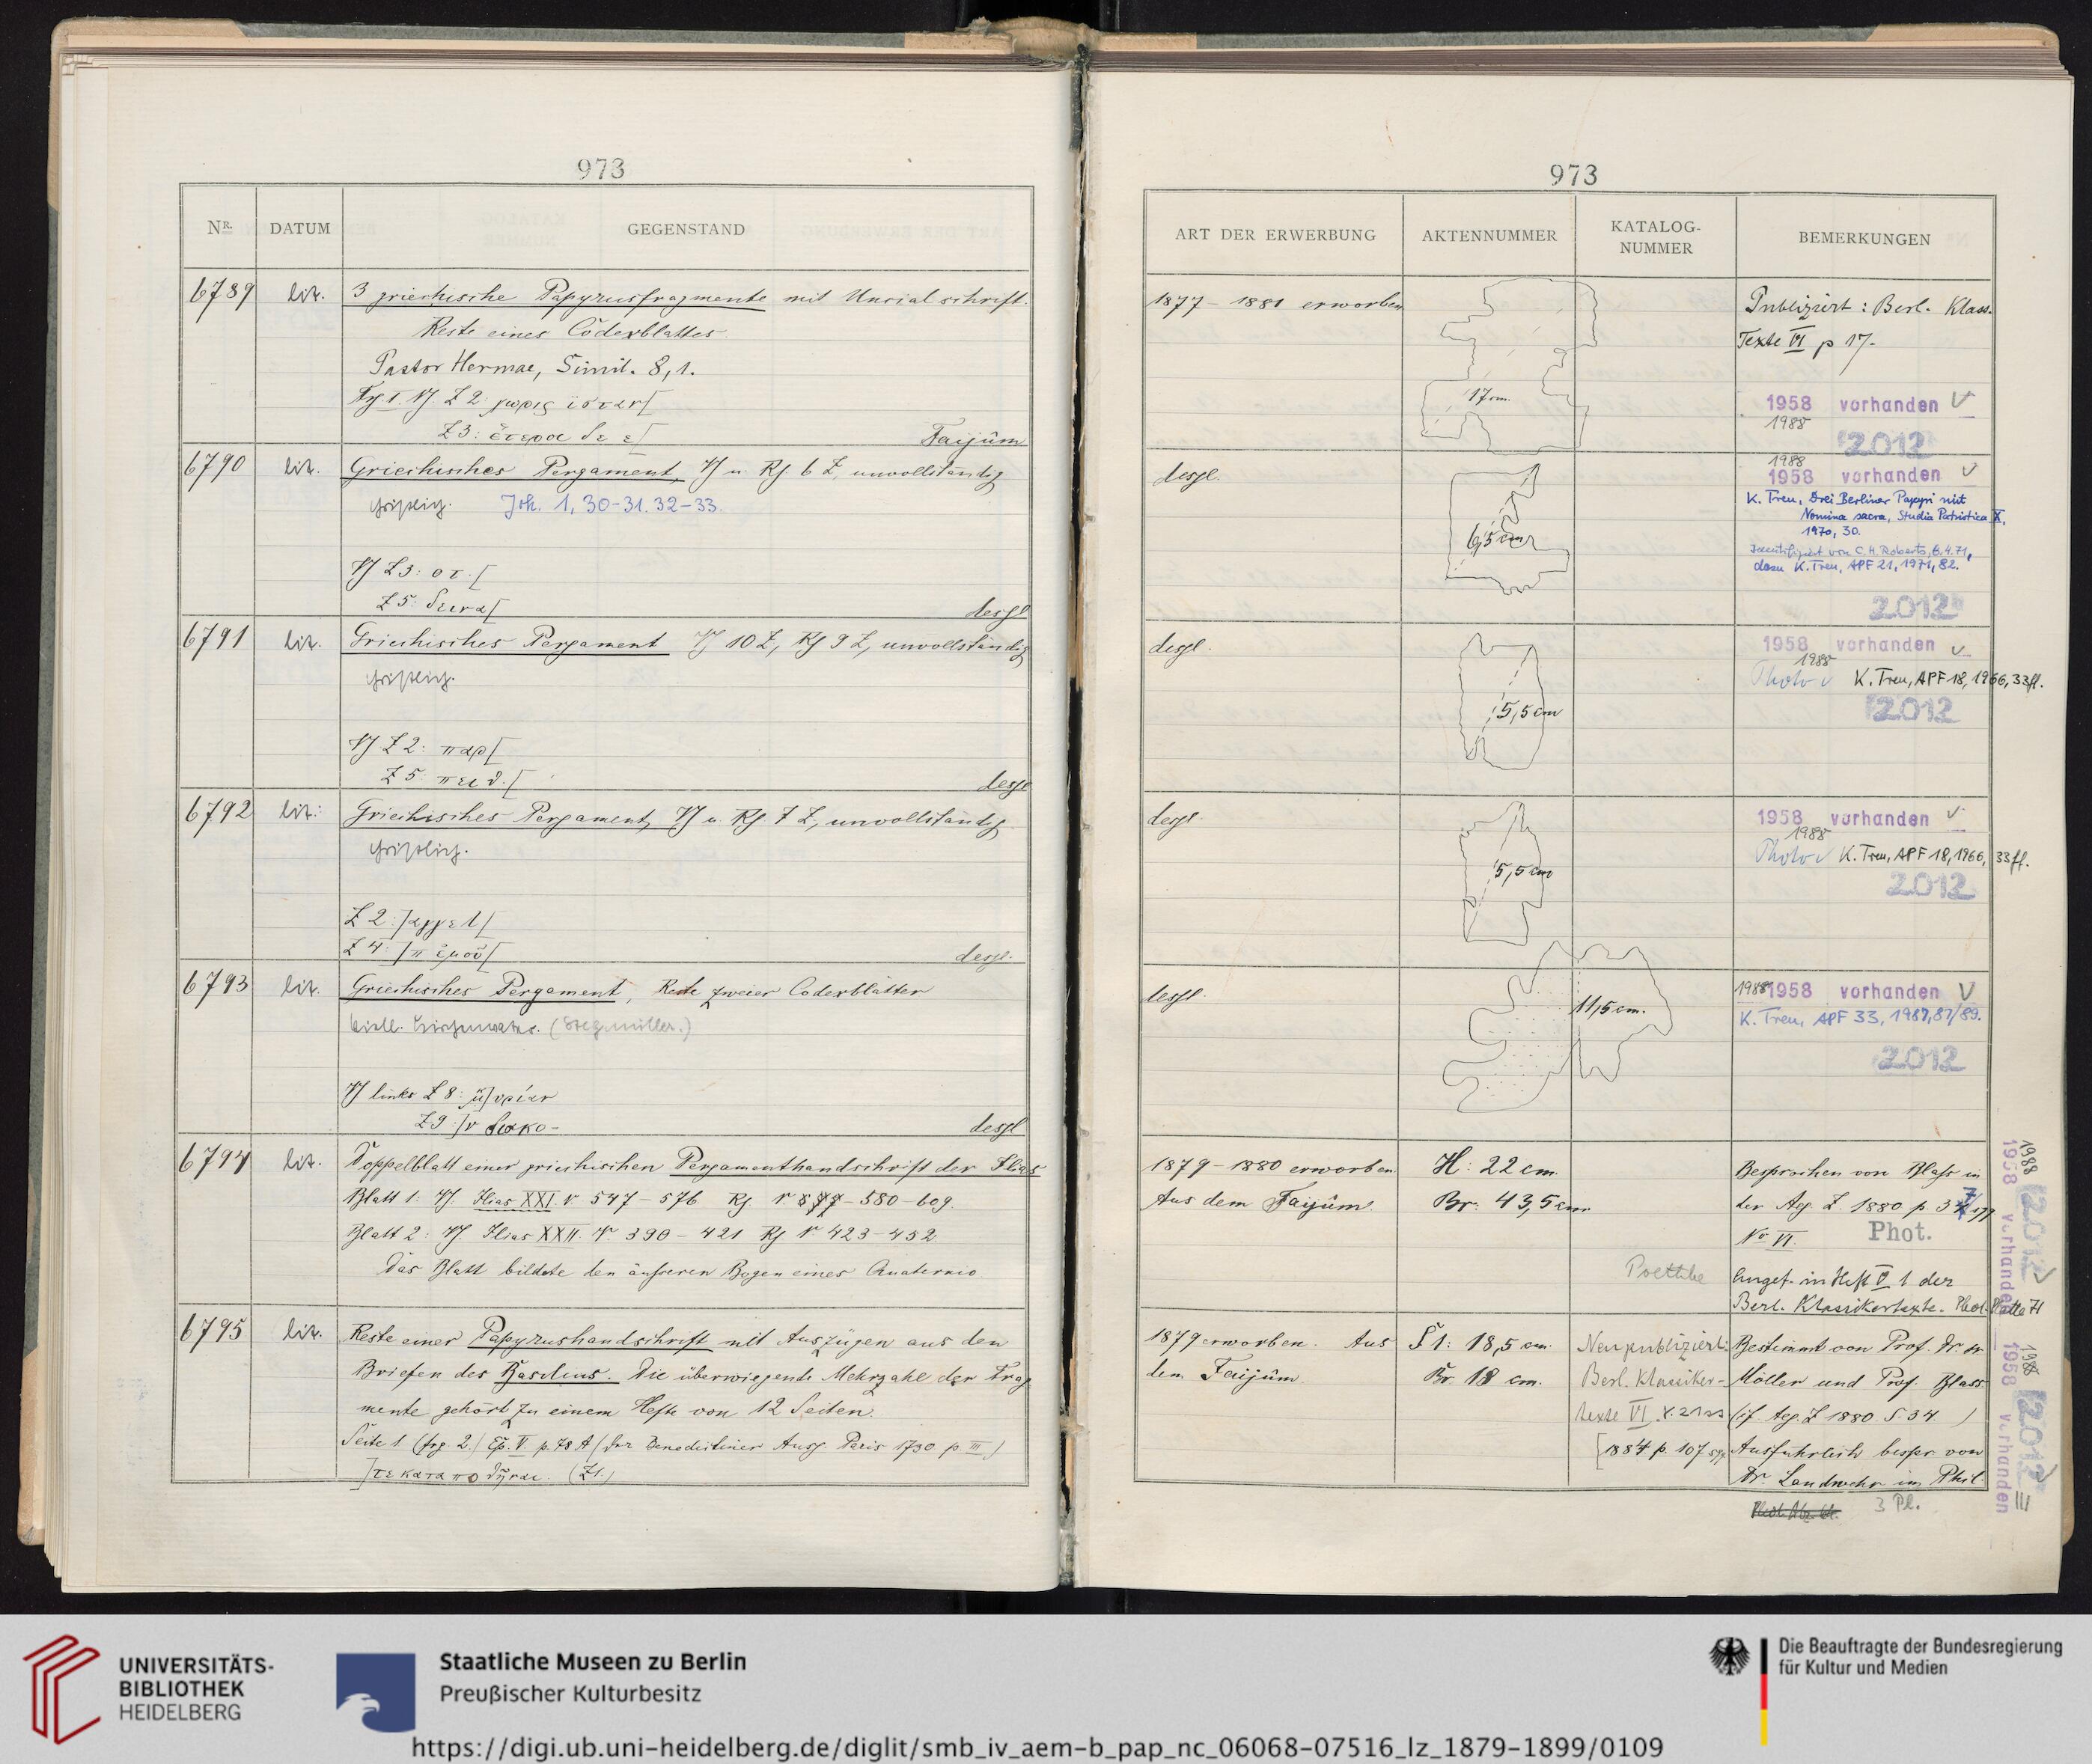 973
NR. DATUM GEGENSTAND
6789 lit. 3 griechische Papyrusfragmente mit Uncialschrift.
Reste eines Codexblattes
Pastor Hermae, Simil. 8,1.
Z 2: χωρις ϊσταν[
Z3: ἕτεροι δε ε[ Faijûm
6790 lit. Griechisches Pergament, Vs u. Rs. 6 Z, unvollständig
christlich. Joh. 1, 30-31. 32-33.
Vs Z3: οτ.[
Z 5: δεινα[ desgl
6791 lit. Griechisches Pergament Vs 10 Z, Rs 9 Z, unvollständig
christlich.
Vs Z 2: παρ[
Z 5: desgl
6792 lit. Griechisches Pergament, Vs u. Rs 7 Z, unvollständig
christlich.
Z 2: ]αγγελ[
Z 4: ]π ἐμοῦ[ desgl.
6793 lit. Griechisches Pergament, Reste zweier Codexblätter
vielt. Kirchenvater. (Stegmüller.)
Vs links Z 8:
Z9: desgl
6794 lit. Doppelblatt einer griechischen Pergamenthandschrift der Ilias
Blatt 1: Vs. Ilias XXI. v 547 - 576 Rs. v 577 - 580 - 609.
Blatt 2: Vs. Ilias XXII. v 390 - 421 Rs v 423 - 452
Das Blatt bildete den äusseren Bogen eines Quaternio
6795 lit. Reste einer Papyrushandschrift mit Auszügen aus den
Briefen des Basilius. Die überwiegende Mehrzahl der Frag
mente gehört zu einem Hefte von 12 Seiten.
Seite 1 (frg. 2.) Ep. V p. 78 A (der Benedictiner Ausg. Paris 1730 p. III)
(Z1.)
973
ART DER ERWERBUNG AKTENNUMMER KATALOG-NUMMER BEMERKUNGEN
1877 - 1881 erworben 17 cm. Publiziert: Berl. Klass.
Texte VI p 17.
1958 vorhanden
1988
2012
desgl. 6,5 cm 1988
1958 vorhanden
K. Treu, Drei Berliner Papyri mit
Nomina sacra, Studia Patristica X,
1970, 30.
Identifiziert von C. H. Roberts, 6.4.71,
dazu K. Treu, APF 21, 1971, 82.
2012
desgl. 5,5 cm 1958 vorhanden
1988
Photo K. Treu, APF 18, 1966, 33ff.
2012
desgl 5,5 cm 1958 vorhanden
1988
Photo K. Treu, APF 18, 1966, 33 ff.
2012
desgl. 11,5 cm. 1988 1958 vorhanden
K. Treu, APF 33, 1987, 87/89.
2012
1879 - 1880 erworben H: 22 cm. Besprochen von Blass in
Aus dem Faijûm. Br: 43,5 cm der Aeg. Z. 1880 p.
No VI. Phot.
Poethke Angef. in Heft V 1 der
Berl. Klassikertexte. Phot. Platte 71
1988 2012
1958 vorhanden
1879 erworben. Aus S 1: 18,5 cm. Neu publiziert: Bestimmt von Prof. Dr
dem Faijûm. Br 18 cm. Berl. Klassiker- Möller und Prof. Blass
texte VI (cf Aeg. Z 1880. S. 34. )
[1884 p. 107 Ausführlich bespr von
Dr. Landwehr im Phil.
3 Pl.
1988 2012
1958 vorhanden
UNIVERSITÄTS-
BIBLIOTHEK
HEIDELBERG
Staatliche Museen zu Berlin
Preußischer Kulturbesitz
Die Beauftragte der Bundesregierung
für Kultur und Medien
https://digi.ub.uni-heidelberg.de/diglit/smb_iv_aem-b_pap_nc_06068-07516_lz_1879-1899/0109